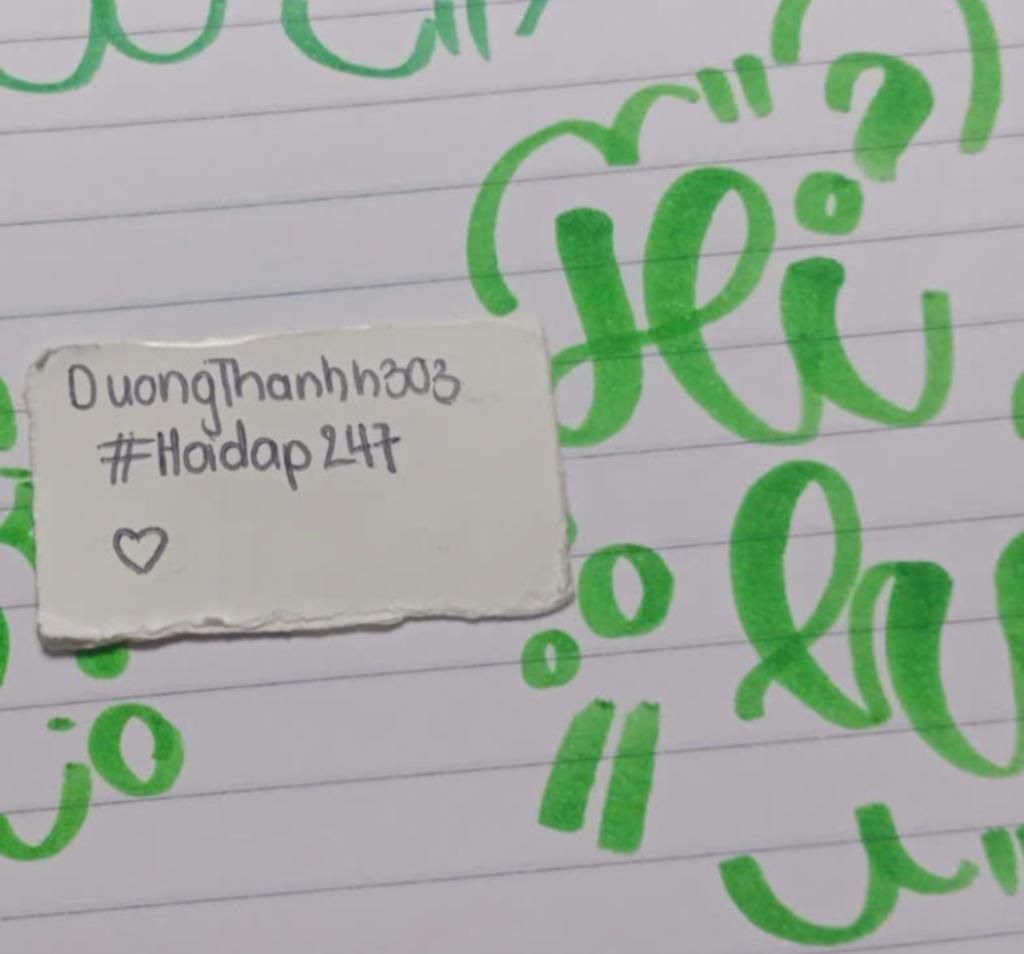 Hi
DuongThanhh303
#Hoidap247